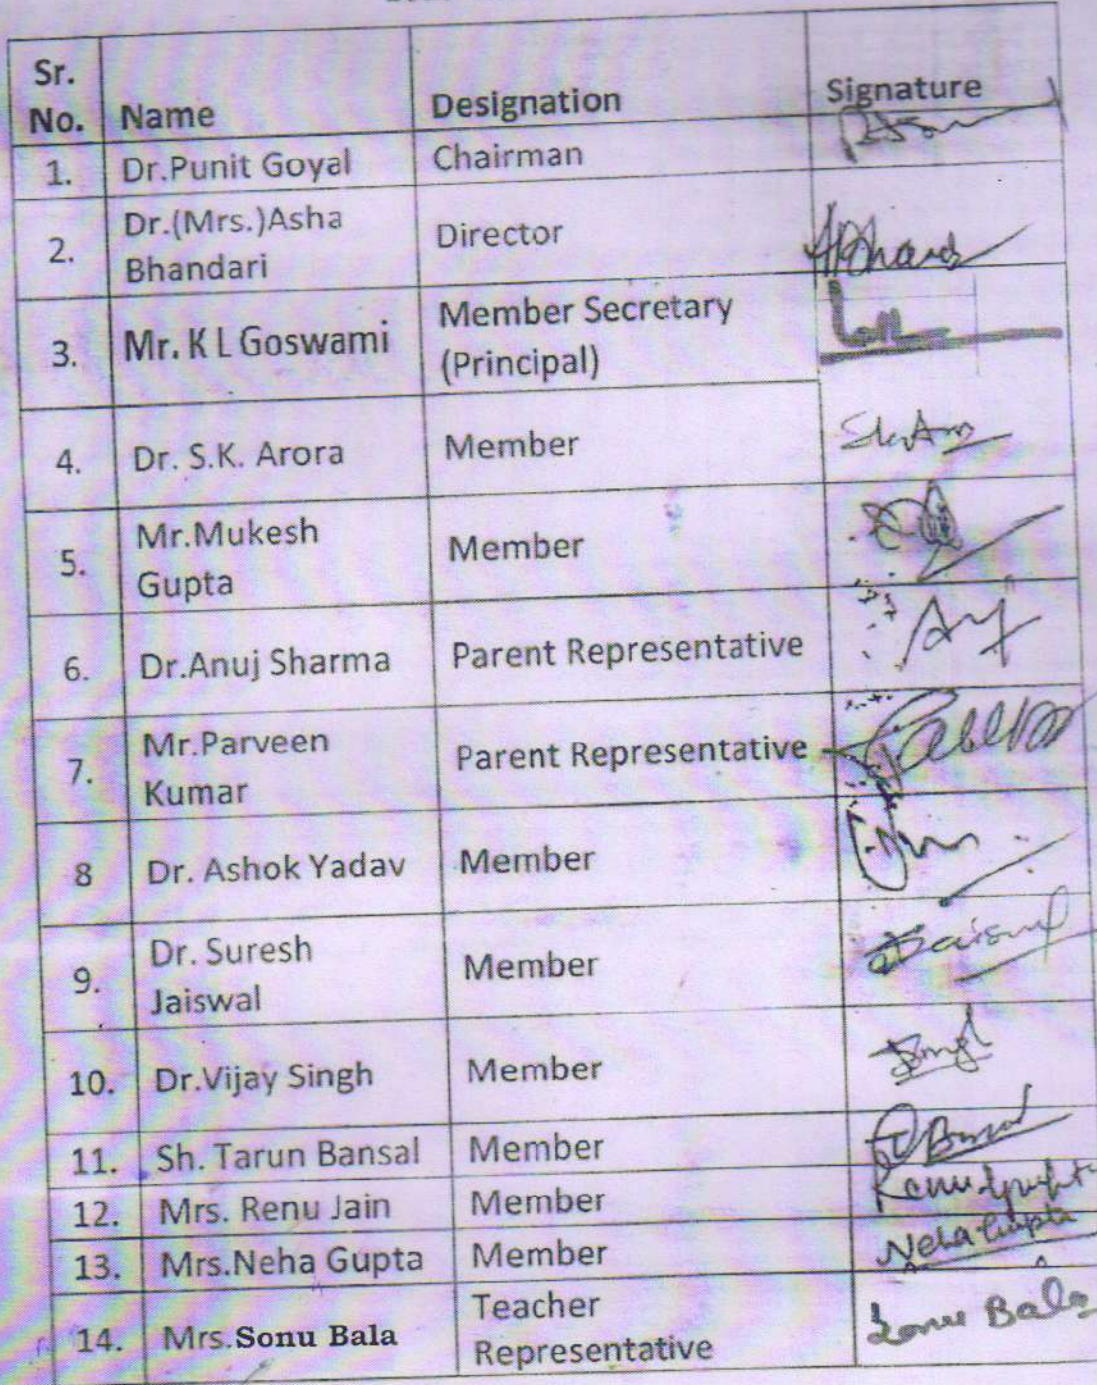 Sr.
No. Name Designation Signature
1. Dr.Punit Goyal Chairman
2. Dr.(Mrs.)Asha
Bhandari Director
3. Mr. K L Goswami Member Secretary
(Principal)
4. Dr. S.K. Arora Member
5. Mr.Mukesh
Gupta Member
6. Dr.Anuj Sharma Parent Representative
7. Mr.Parveen
Kumar Parent Representative
8 Dr. Ashok Yadav Member
9. Dr. Suresh
Jaiswal Member
10. Dr.Vijay Singh Member
11. Sh. Tarun Bansal Member
12. Mrs. Renu Jain Member
13. Mrs.Neha Gupta Member Neha Gupta
14. Mrs.Sonu Bala Teacher
Representative Sonu Bala